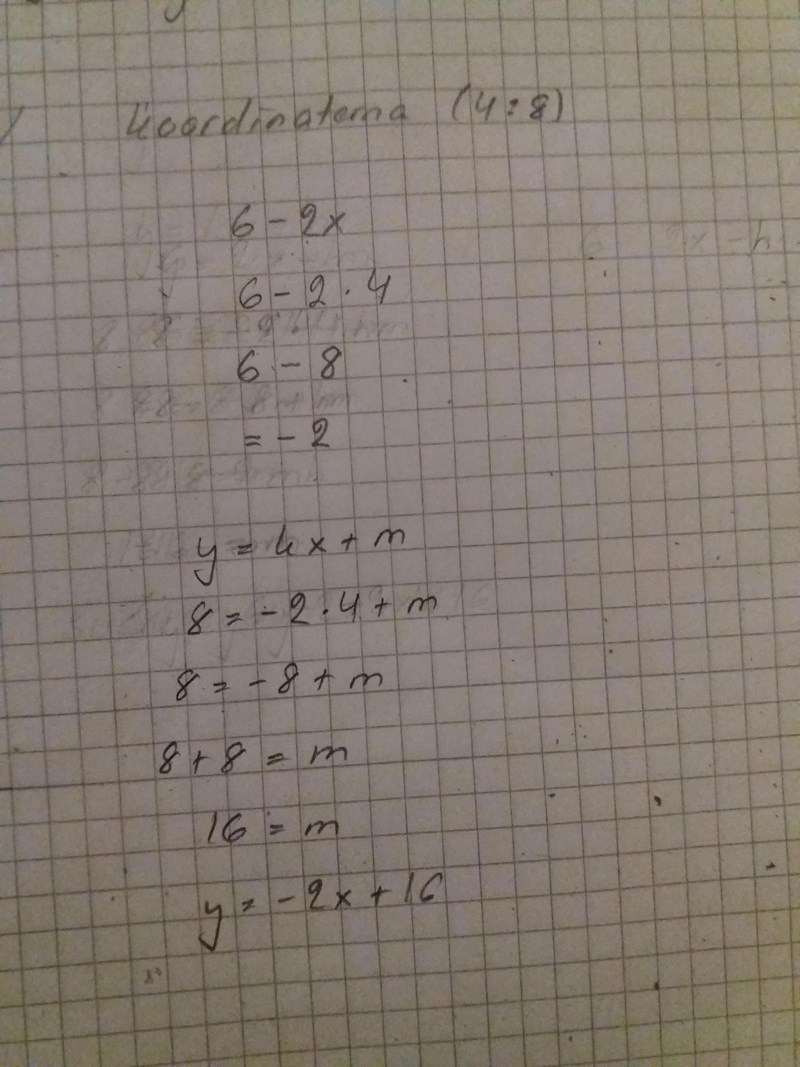 Koordinaterna (4:8)
6 - 2x
6 - 2 · 4
6 - 8
= - 2
y = kx + m
8 = - 2 · 4 + m
8 = - 8 + m
8 + 8 = m
16 = m
y = - 2x + 16